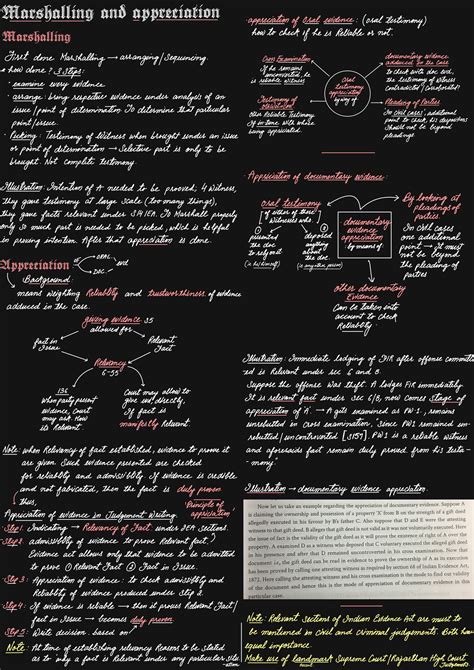 Marshalling and appreciation
Marshalling
First done Marshalling → arranging/Sequencing.
how done? 3 Steps:
· examine every evidence
· arrange: bring respective evidence under analysis of an
issue/point of determination To determine that particular
point/issue.
· Picking: Testimony of Witness when brought under an issue
or point of determination → Selective part is only to be
brought. Not complete testimony.
Illustration: Intention of A needed to be prooved, 4 witness,
they gave testimony at large Scale (too many things),
they gave facts relevant under S14IEA. To Marshall properly
only so much part is needed to be picked, which is helpful
in proving intention. After that appreciation is done.
Appreciation of
ORAL
and
DOC
Background:
means weighting Reliability and trustworthiness of evidence
adduced in the case.
giving evidence
allowed for
fact in
Issue
Relevant
fact
Relevancy
6-55
136
When party present
evidence, Court
may ask How it
is Relevant
Court may allow to
give evi directly,
If fact is
manifestly Relevant
Note: when Relevancy of fact established, evidence to prove it
are given. Such evidence presented are checked
for reliability and admissibility. If evidence is credible
and not fabricated, then the fact is duly proven
thus,
Principle of
appreciation
Appreciation of evidence in Judgement Writing.
Step 1. Indicating → Relevancy of Fact under IEA Sections.
Step 2. admissibility → to prove Relevant fact?
Evidence act allows only that evidence to be admitted
to prove ① Relevant Fact ② Fact in Issue.
Step 3: Appreciation of evidence: to check admissibility and
Reliability of evidence produced under Step 2.
Step 4: If evidence is reliable → then it proves Relevant fact/
fact in Issue → becomes duly proven.
Step 5: Write decision based on
Note: At time of establishing relevancy Reasons to be stated
as to why a fact is Relevant under any particular
appreciation of Oral evidence: (oral testimony)
how to check if he is Reliable or not.
Cross Examination
If he remains
uncontroverted, he
is reliable witness
documentary evidence
adduced in the case
to check with doc evi,
the testimony of Witness
Contradicted/Corroborated?
Oral
testimony
appreciated
by way of
Testimony of
other Reliable Testimony
is in tune with whose
being appreciated.
Pleading of Parties
In civil cases, additional
point to check, his depositions
Should not be beyond
pleadings
Appreciation of documentary evidence:
oral testimony
of either of those
Witnesses who
① presented
the doc
to rely on it
(in himself)
② deposed
anything
about
the doc
(is any other person)
documentary
evidence
appreciation
by means of
By looking at
pleadings of
parties.
In civil cases
one additional
point → It must
not be beyond
the pleading of
parties
other documentary
Evidence
Can be taken into
account to check
Reliability
Illustration: Immediate lodging of FIR after offense committ
ed is Relevant under sec 6 and 8.
Suppose the offense was theft. A lodges FIR immediately.
It is relevant fact under Sec 6/8, now comes stage of
appreciation of it. → A gets examined as PW1, remains
unrebutted in cross examination, Since PW1 remained un-
rebutted/uncontroverted [S157]. PW1 is a reliable witness
and aforesaids fact remain duly proved from his testi-
mony.
Illustration → documentary evidence appreciation.
Now let us take an example regarding the appreciation of documentary evidence. Suppose A
is claiming the ownership and possession of a property X from B on the strength of a gift deed
allegedly executed in his favour by B's father C. Also suppose that D and E were the attesting
witness to that gift deed. B alleges that gift deed is not valid as it was not voluntarily executed. Here
the issue of fact is the validity of the gift deed as it will prove the existence of right of A over the
property. A examined D as a witness who deposed that C voluntary executed the alleged gift deed
in his presence and after that D remained uncontroverted in his cross examination. Now the
document i.e. the gift deed can be read in evidence to prove the ownership of A as its execution
has been proved by calling one attesting witness as required by section 68 of Indian Evidence Act,
1872. Here calling the attesting witness and his cross examination is the mode to find out validity
of the document and hence this is the mode of appreciation of documentary evidence in this
particular case.
Note: Relevant Sections of Indian Evidence Act are must to
be mentioned in Civil and Criminal judgements. Both have
equal importance.
Make use of Landmark Supreme Court/Rajasthan High Court